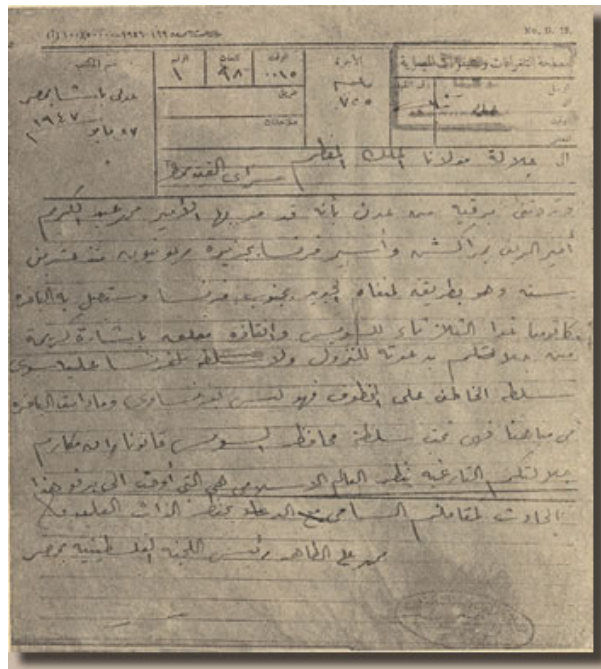 No. D. 19.
مصلحة التغرافات و
الأجرة
٧٥٥
الوقت
٠٠١٥
كلمات
٩٨
الرقم
١
طريق
ملاحظات
اسم المكتب
عدلى باشا بمصر
٢٧ مايو ١٩٤٧
الى جلالة مولانا الملك المعظم
سراى القبة بمصر
وردتنى برقية من عدن بأنه قد مر بها الأمير محمد عبد الكريم
أمير الريف بمراكش وأسير فرنسا بجزيرة ريونيون منذ عشرين
سنة وهو بطريقه لمنفاه الجديد بجنوب فرنسا وستصل به الباخرة
كاتومبا غدا الثلاثاء للسويس وانقاذه معلق باشارة كريمة
من جلالتكم بدعوته للنزول ولا سلطة لفرنسا عليه سوى
سلطة الخاطف على المخطوف فهو ليس بفرنساوى ومادامت الباخرة
فى مياهنا فهى تحت سلطة محافظ السويس قانونا وان مكارم
جلالتكم التاريخية بنظر العالم الاسلامى هى التى أوحت الى برفع هذا
الحادث لمقامكم السامى مع الدعاء بحفظ الذات العلية
محمد على الطاهر رئيس اللجنة الفلسطينية بمصر